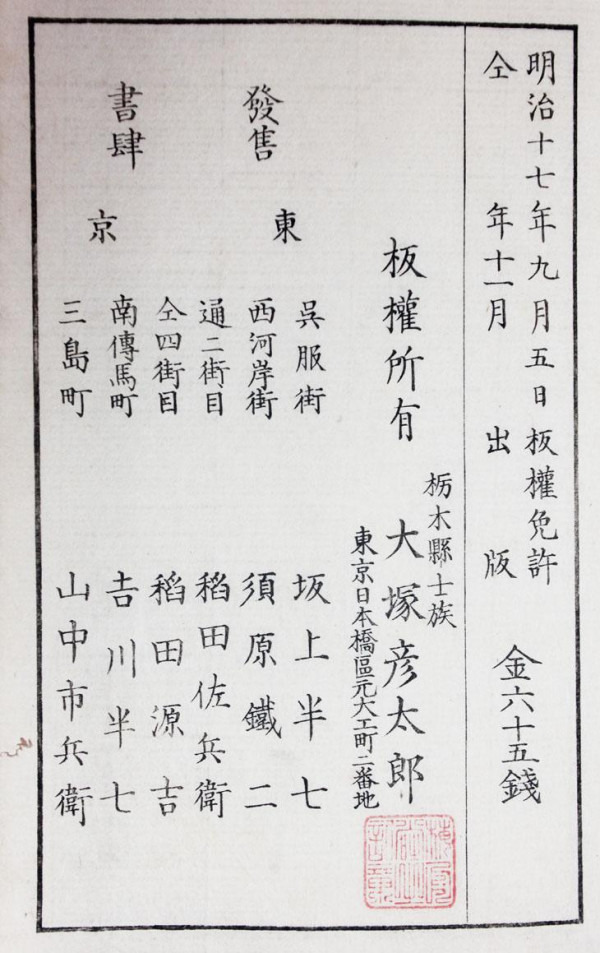 明治十七年九月五日板權免許
仝 年十一月 出版
金六十五錢
板權所有
栃木縣士族
大塚彦太郎
東京日本橋區元大工町二番地
發售
書肆
東
京
呉服街 坂上半七
西河岸街 須原鐵二
通二街目 稻田佐兵衛
仝四街目 稻田源吉
南傳馬町 吉川半七
三島町 山中市兵衛